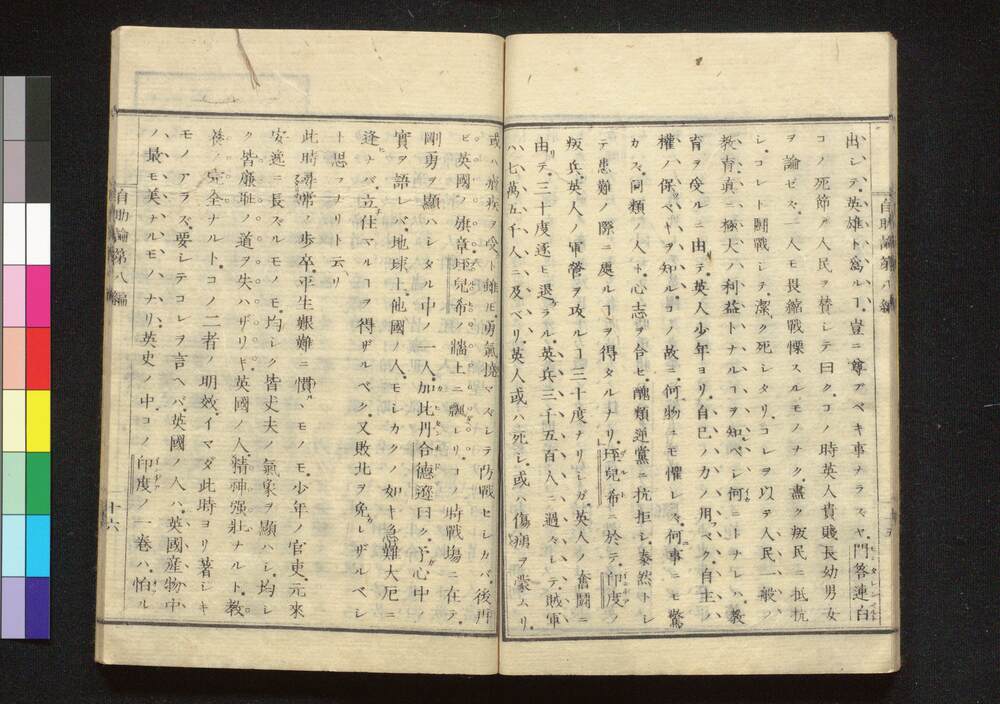 出シテ、英雄ト為ルヿ、豈ニ尊アベキ事ナラズヤ、門答連白
コノ死節ノ人民ヲ替シテ曰ク、コノ時英人貴賤長幼男女
ヲ論ゼズ、一人モ畏縮戰慄スルモノナク、盡ク叛民ニ抵抗
シ、コレト鬪戰シテ、潔ク死シタリ、コレヲ以テ人民一般ノ
教育、真ニ極大ノ利益トナルヿヲ知ベシ、何ニトナレハ、教
育ヲ受ルニ由テ、英人少年ヨリ、自己ノ力ノ用フベク、自主ノ
權ノ保ベキヲ知ル、コノ故ニ、何物ニモ懼レズ、何事ニモ驚
カズ、同類ノ人ト、心志ヲ合セ、醜類逆黨ニ抗拒シ、泰然トシ
テ患難ノ際ニ處ルヿヲ得タルナリ、垤兒希ニ於テ、印度ノ
叛兵、英人ノ軍營ヲ攻ルヿ三十度ナリシガ、英人ノ奮鬪ニ
由リテ、三十度逐ヒ退ラル、英兵三千五百人ニ過ズシテ、賊軍
ハ七萬五千人ニ及ベリ、英人或ハ死シ、或ハ傷痍ヲ蒙ムリ、
或ハ病疾ヲ受ト雖モ、勇氣撓マズシテ防戰ヒシカバ、後再
ビ英國ノ旗章垤兒希ノ牆上ニ飄レリ、コノ時戰場ニ在テ、
剛勇ヲ顯ハシタル中ノ一人、加比丹合德遼曰ク、予心中ノ
實ヲ語レバ、地球上、他國ノ人、モシカクノ如キ急難大厄ニ
逢ナバ、立住マルコヲ得ザルベク、又敗北ヲ免レザルベシ
ト思フナリト云、
此時尋常ノ歩卒、平生艱難ニ慣ヘモノモ、少年ノ官吏、元來
安逸ニ長ズルモノモ、均シク皆丈夫ノ氣象ヲ顯ハシ、均シ
ク皆廉耻ノ道ヲ失ハザリキ、英國ノ人、精神强壯ナルト、教
養ノ完全ナルト、コノ二者ノ明效、イマダ此時ヨリ著シキ
モノアラズ、要シテコレヲ言ヘバ、英國ノ人ハ、英國産物中
ノ最モ美ナルモノナリ、英史ノ中、コノ印度ノ一卷ハ、怕ル
自助論第八編
十六